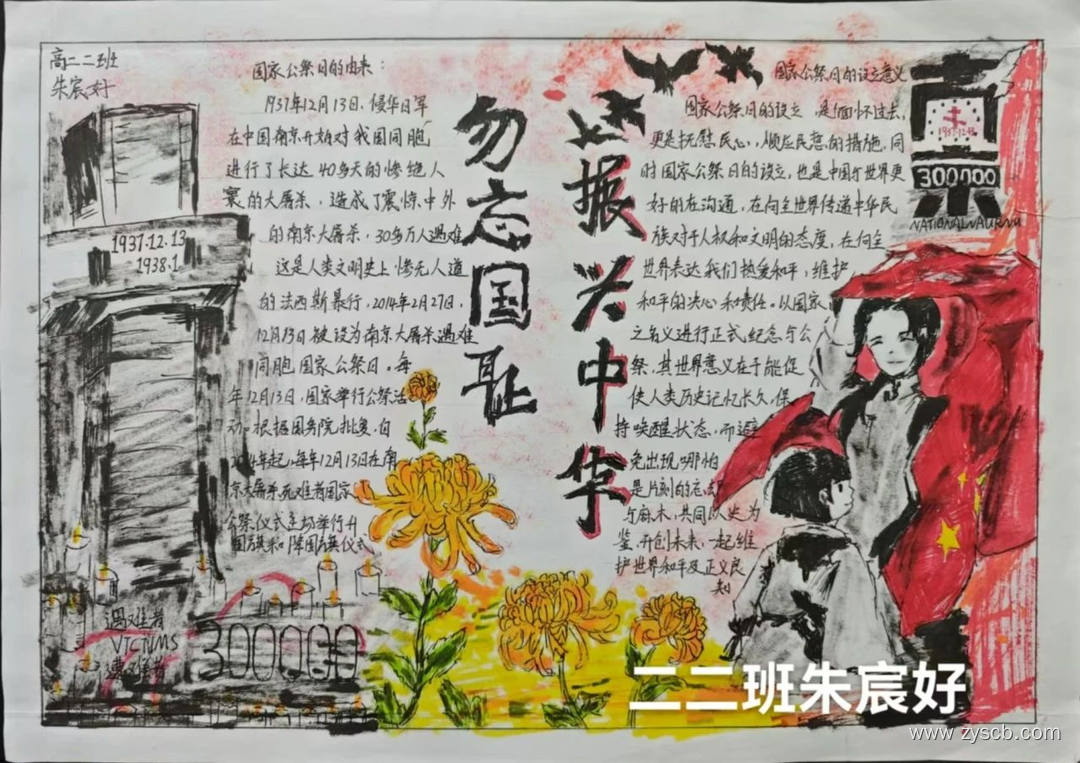 高二二班
朱宸好
国家公祭日的由来：
1937年12月13日，侵华日军
在中国南京开始对我国同胞
进行了长达40多天的惨绝人
寰的大屠杀，造成了震惊中外
的南京大屠杀，30多万人遇难
这是人类文明史上惨无人道
的法西斯暴行，2014年2月27日，
12月13日被设为南京大屠杀遇难
同胞国家公祭日。每
年12月13日，国家举行公祭活
动。根据国务院批复，自
2014年起，每年12月13日在南
京大屠杀死难者国家
公祭仪式主场举行升
国旗和降国旗仪式
勿忘国耻
振兴中华
国家公祭日的设立意义
国家公祭日的设立，是缅怀过去，
更是抚慰民心，顺应民意的措施，同
时国家公祭日的设立，也是中国与世界更
好的在沟通，在向全世界传递中华民
族对于人权和文明的态度，在向全
世界表达我们热爱和平，维护
和平的决心和责任。以国家
之名义进行正式纪念与公
祭，其世界意义在于能促
使人类历史记忆长久，保
持唤醒状态，而避
免出现哪怕
是片刻的忘却
与麻木，共同以史为
鉴，开创未来，一起维
护世界和平及正义良
知
1937.12.13
300000
1937.12.13
1938.1
遇难者
VICTIMS
遭難者
300000
二二班朱宸好
www.zyscb.com